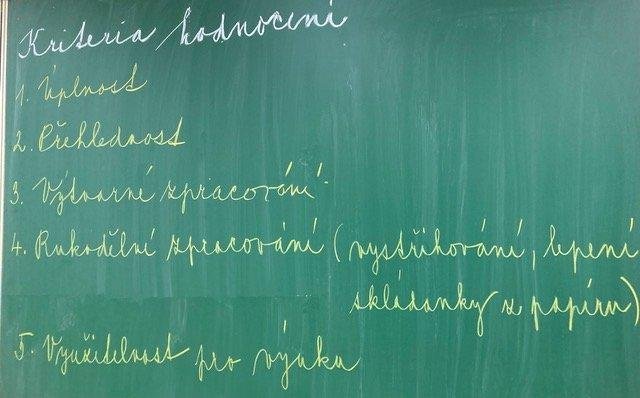 Kriteria hodnocení
1. Úplnost
2. Přehlednost
3. Výtvarné zpracování
4. Rukodělné zpracování (vystřihování, lepení
skládanky z papíru)
5. Využitelnost pro výuku